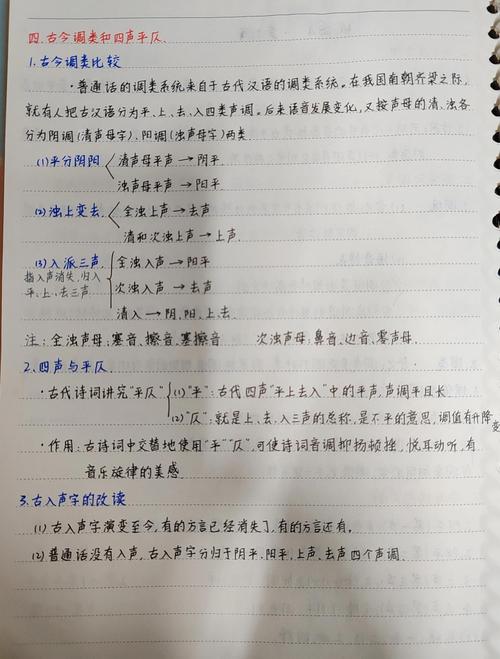 四.古今调类和四声平仄.
1.古今调类比较
·普通话的调类系统来自于古代汉语的调类系统。在我国南朝齐梁之际,
就有人把古汉语分为平、上、去、入四类声调。后来语音发展变化,又按声母的清、浊各
分为阴调(清声母字)、阳调(浊声母字)两类
(1)平分阴阳 清声母平声→阴平
浊声母平声→阳平
(2)浊上变去 全浊上声→去声
清和次浊上声→上声.
(3)入派三声 全浊入声→阳平
指入声消失,归入
平、上、去三声 次浊入声→去声
清入→阴、阳、上、去.
注:全浊声母:塞音、擦音、塞擦音 次浊声母:鼻音、边音、零声母.
2.四声与平仄.
·古代诗词讲究“平仄” (1)“平”:古代四声“平上去入”中的平声,声调平且长
(2)“仄”:就是上、去、入三声的总称,是不平的意思,调值有升降变
·作用:古诗词中交替地使用“平”“仄”,可使诗词音调抑扬顿挫,悦耳动听,有
音乐旋律的美感.
3.古入声字的改读
(1)古入声字演变至今,有的方言已经消失了,有的方言还有.
(2)普通话没有入声,古入声字分归于阴平、阳平、上声、去声四个声调.